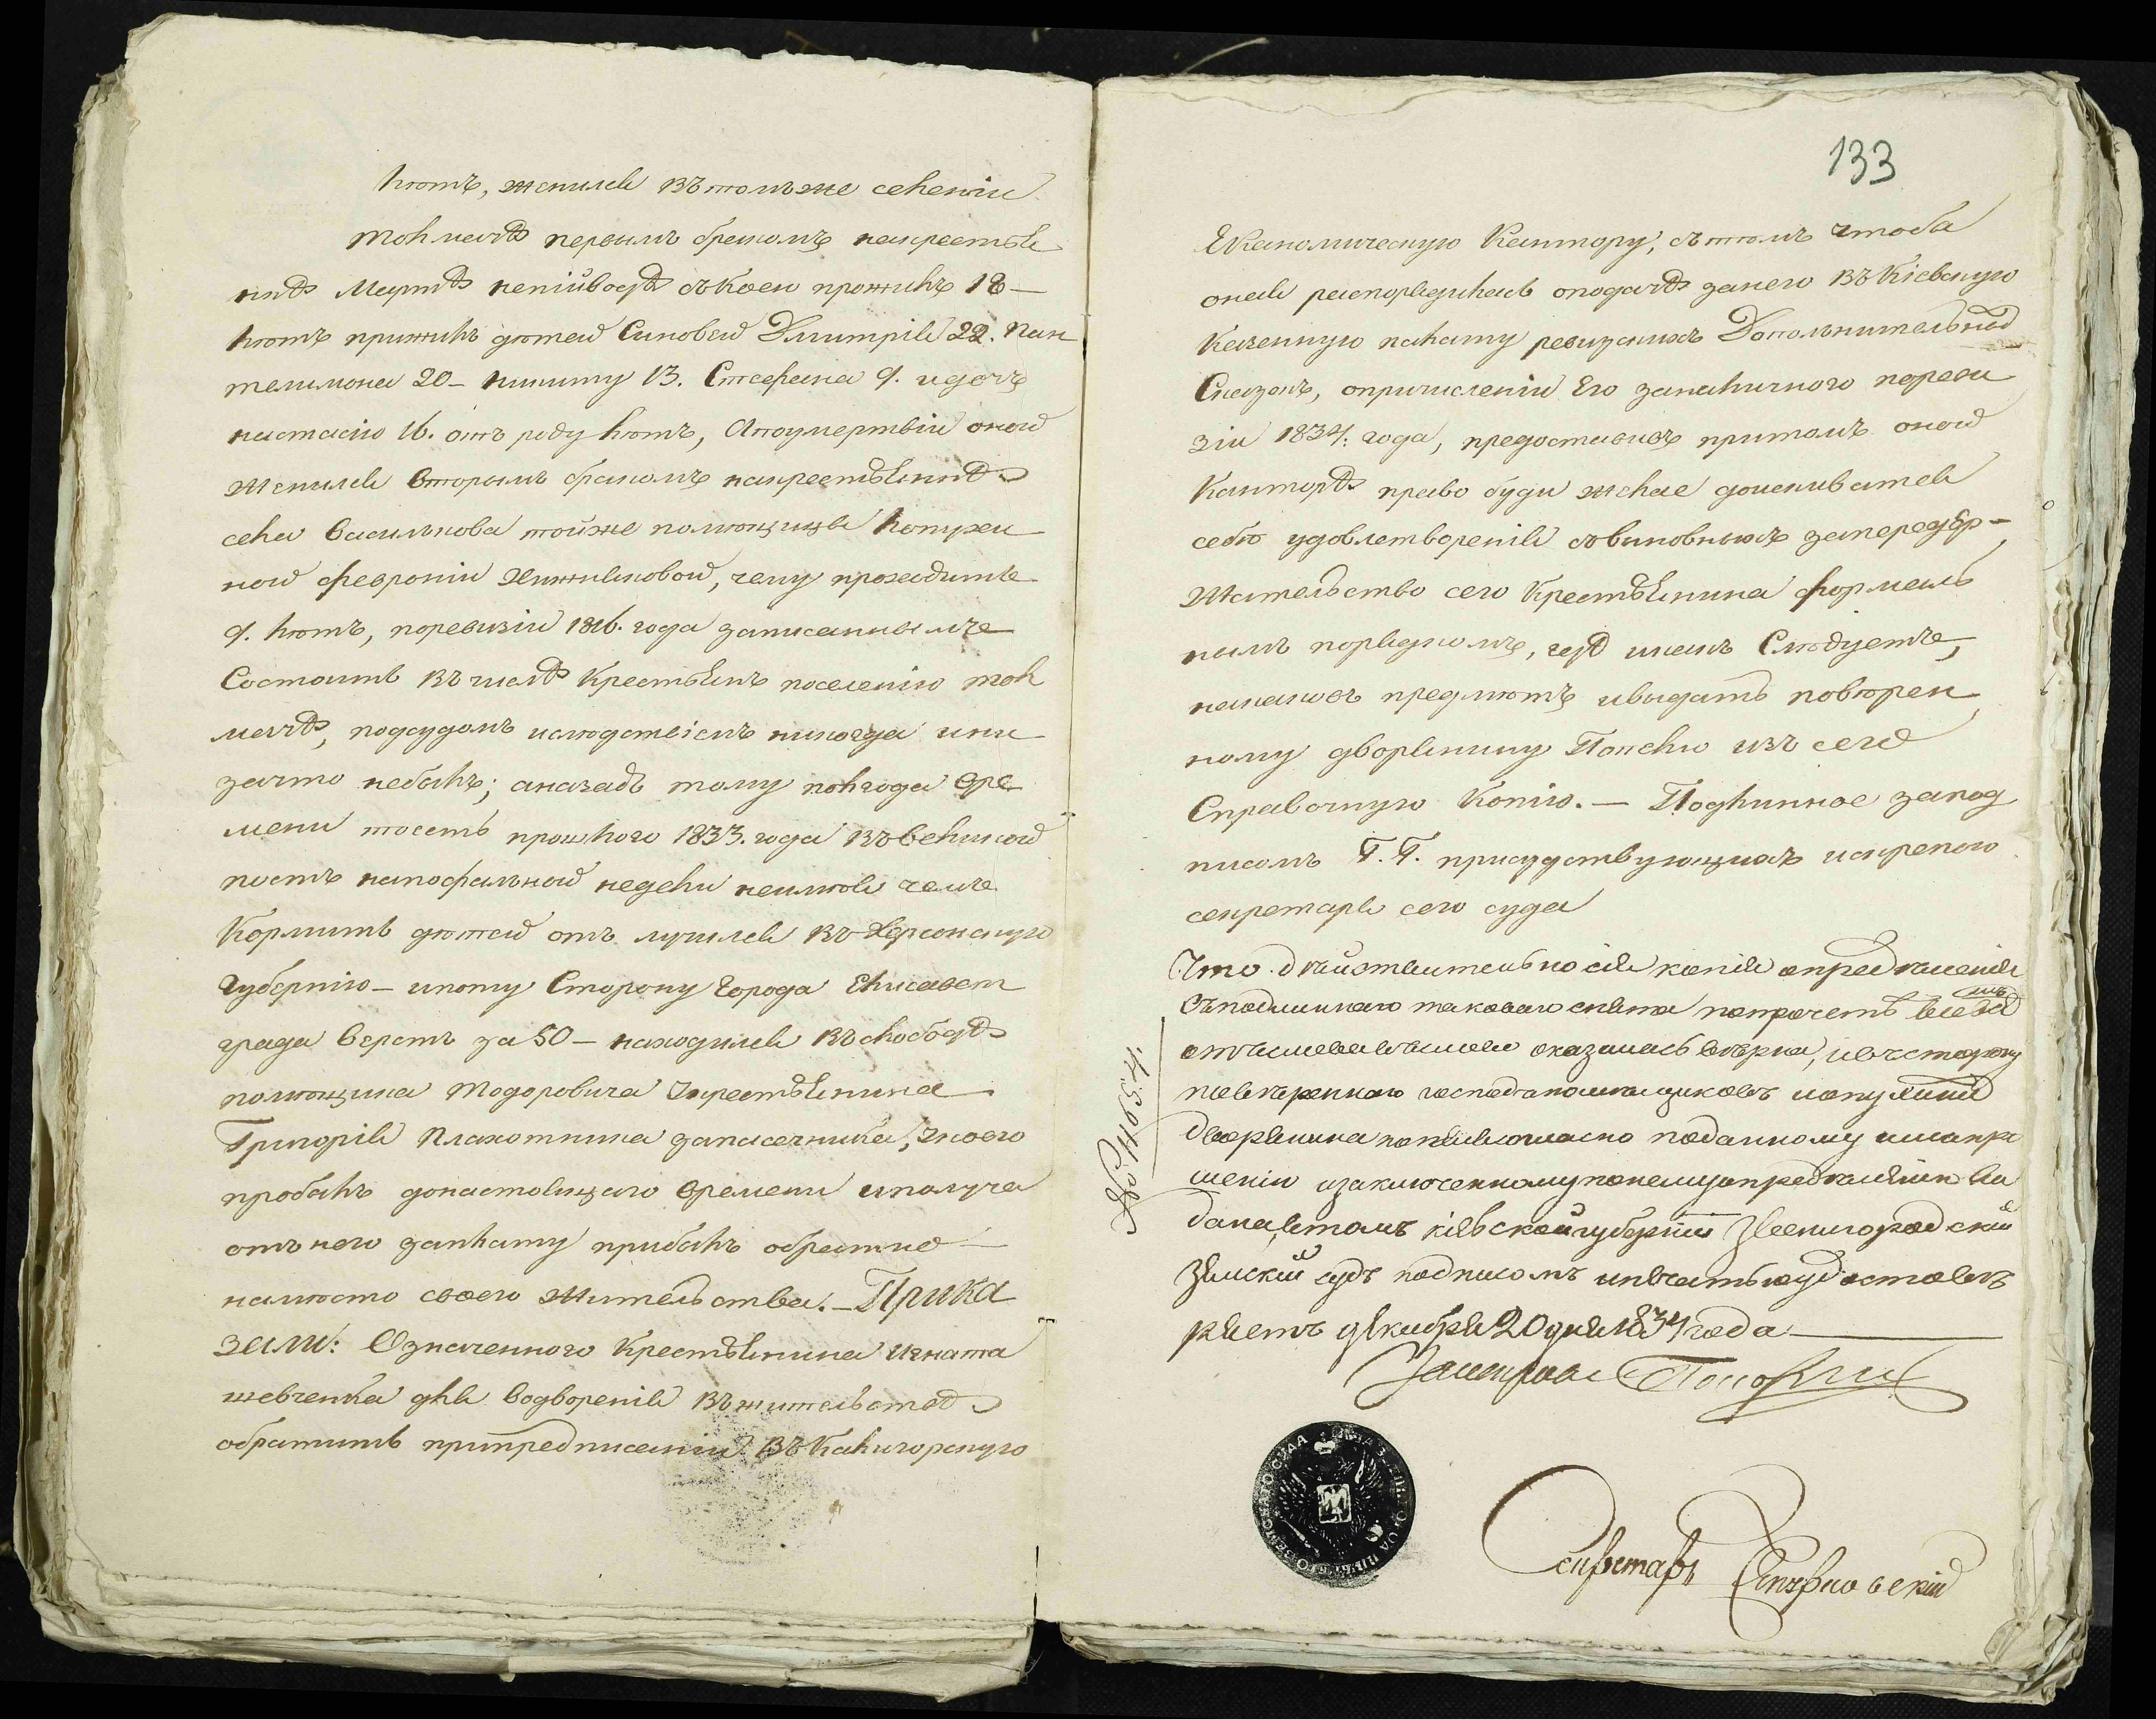 лютъ, женился въ томъ же селеніи
толмачѣ первымъ бракомъ на крестья
нкѣ Марѳѣ съ коею прожилъ 18 —
лютъ прижилъ дѣтей Синовей Дмитрія 22. Пан
телимона 20 — Никиту 13. Стефана 9. и дочь
настасію 16. отъ роду лѣтъ, А по умертвіи оной
женился вторымъ бракомъ на крестьянкѣ
села Василькова той же помѣщицы Лопухи
ной февроніи, чему проходитъ
9. лѣтъ, по ревизіи 1816. года записаннымъ
Состоитъ въ числѣ крестьянъ поселенію тол
мачѣ, под судомъ и слѣдствіемъ никогда и ни
за что небылъ; а назадъ тому полгода вре
мени тоесть прошлого 1833. года въ великой
постъ на похвальной недели не имѣя чемъ
Кормить дѣтей отъ лучился въ Херсонскую
Губернію — и по ту Сторону Города Елисавет
града верстъ за 50 — находился въ слободѣ
помѣщика Тодоровича у крестьянина
Григорія Плахотника за пасечника, у коего
пробылъ до настоящего времени и получа
отъ него заплату прибылъ обратно
на мѣсто своего жительства. — Прика
зали: Означенного Крестьянина Игната
шевченка для водворенія въ жительствѣ
обратить при предписаніи въ Калигорскую
133
Економическую Кантору, съ тѣмъ чтоба
оная распорядилась о подачѣ за него въ Кіевскую
Казенную палату ревизскихъ Дополнительной
Сказокъ, о причисленіи Его за наличного по реви
зіи 1834: года, предоставивъ притомъ оной
Канторѣ право буди желае доискиватся
себѣ удовлетворенія съ виновныхъ за передер-
жательство сего Крестьянина формаль
нымъ порядкомъ, гдѣ искъ Слѣдуетъ,
на каковъ предмѣтъ и выдать повѣрен
ному дворянину Покелю изъ сего
Справочную Копію. — Подлинное за под
писомъ Г. Г. присудствующихъ и скрепою
секретаря сего суда
Что действительно сія копія определенія
съ подлинного таковаго снята
оказалась верна, и въ сторону
повѣренного господа помѣщиковъ лопухиныхъ
дворянина согласно поданному имъ пр
шенію и заключенному по нему определѣнію вы
дана, въ томъ кіевской губерніи Звенигородскій
Земскій судъ подписомъ и печатью удостовѣ
ряетъ декабря 20 дня 1834 года
№ 14504
Секретарь